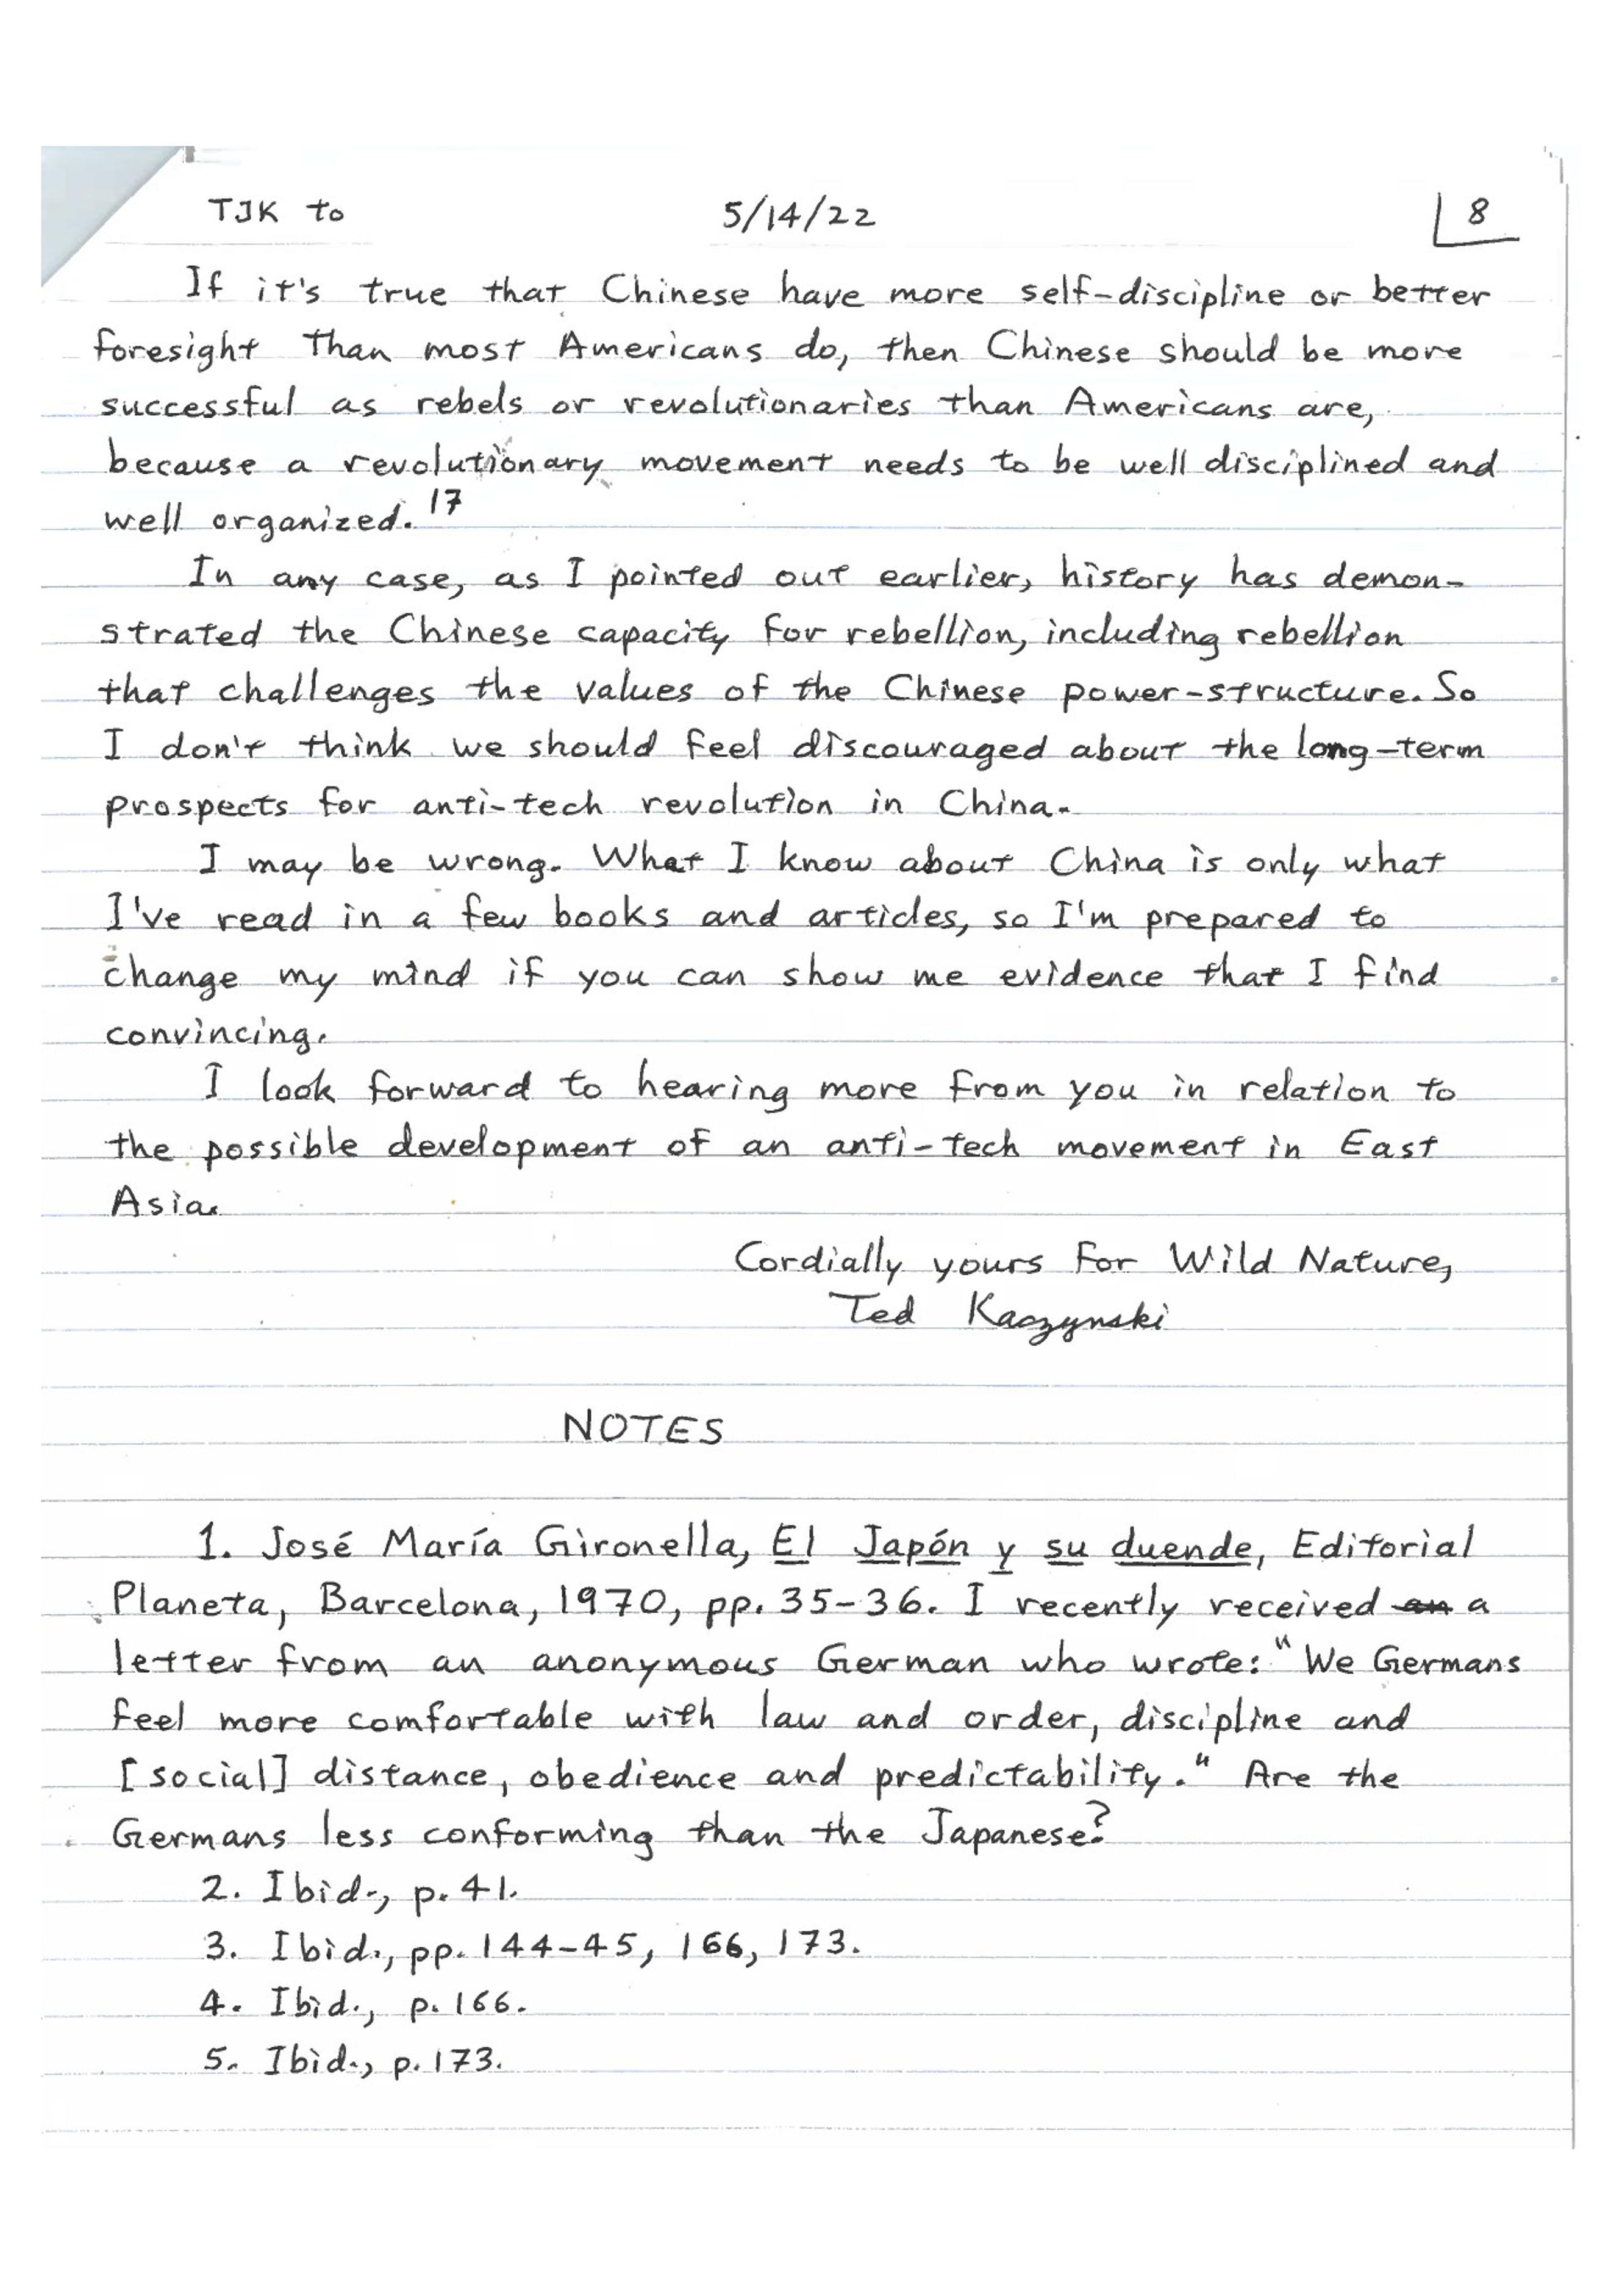 TJK to 5/14/22 8
If it's true that Chinese have more self-discipline or better
foresight than most Americans do, then Chinese should be more
successful as rebels or revolutionaries than Americans are,
because a revolutionary movement needs to be well disciplined and
well organized.17
In any case, as I pointed out earlier, history has demon-
strated the Chinese capacity for rebellion, including rebellion
that challenges the values of the Chinese power-structure. So
I don't think we should feel discouraged about the long-term
prospects for anti-tech revolution in China.
I may be wrong. What I know about China is only what
I've read in a few books and articles, so I'm prepared to
change my mind if you can show me evidence that I find
convincing.
I look forward to hearing more from you in relation to
the possible development of an anti-tech movement in East
Asia.
Cordially yours for Wild Nature,
Ted Kaczynski
NOTES
1. José María Gironella, El Japón y su duende, Editorial
Planeta, Barcelona, 1970, pp. 35-36. I recently received an a
letter from an anonymous German who wrote: "We Germans
feel more comfortable with law and order, discipline and
[social] distance, obedience and predictability." Are the
Germans less conforming than the Japanese?
2. Ibid., p. 41.
3. Ibid., pp. 144-45, 166, 173.
4. Ibid., p. 166.
5. Ibid., p. 173.